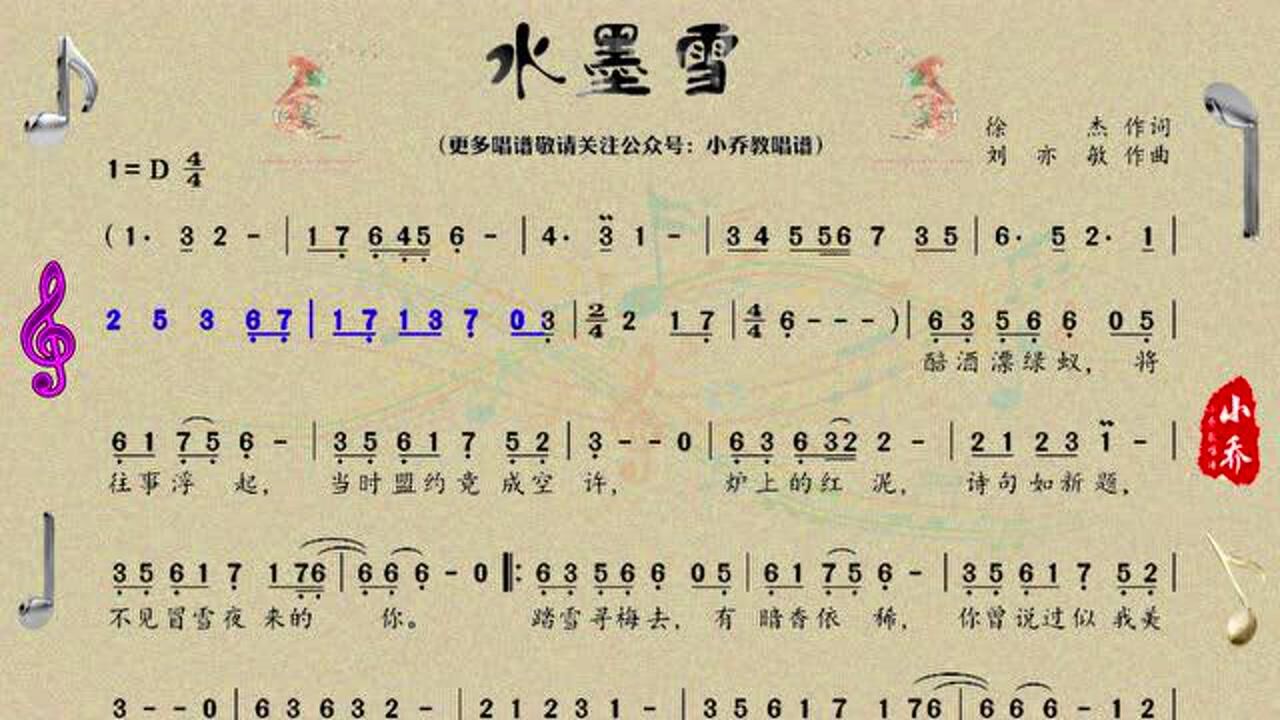 水墨雪
(更多唱谱敬请关注公众号：小乔教唱谱)
徐 杰 作词
刘 亦 敏 作曲
1=D 4/4
(1· 3 2 - | 1 7 6 45 6 - | 4· 3 1 - | 3 4 5 56 7 3 5 | 6· 5 2· 1 |
2 5 3 6 7 | 1 7 1 3 7 0 3 | 2/4 2 1 7 | 4/4 6 - - - ) | 6 3 5 6 6 0 5 |
醅酒漂绿蚁， 将
6 1 7 5 6 - | 3 5 6 1 7 5 2 | 3 - - 0 | 6 3 6 32 2 - | 2 1 2 3 1 - |
往事浮 起， 当时盟约竟 成空 许， 炉上的红 泥， 诗句如新 题，
3 5 6 1 7 1 76 | 6 6 6 - 0 ‖: 6 3 5 6 6 0 5 | 6 1 7 5 6 - | 3 5 6 1 7 5 2 |
不见冒雪夜 来的 你。 踏雪寻梅去， 有 暗香依 稀， 你曾说过似 我美
3 - - 0 | 6 3 6 3 2 - | 2 1 2 3 1 - | 3 5 6 1 7 1 76 | 6 6 6 - 1 2
小乔